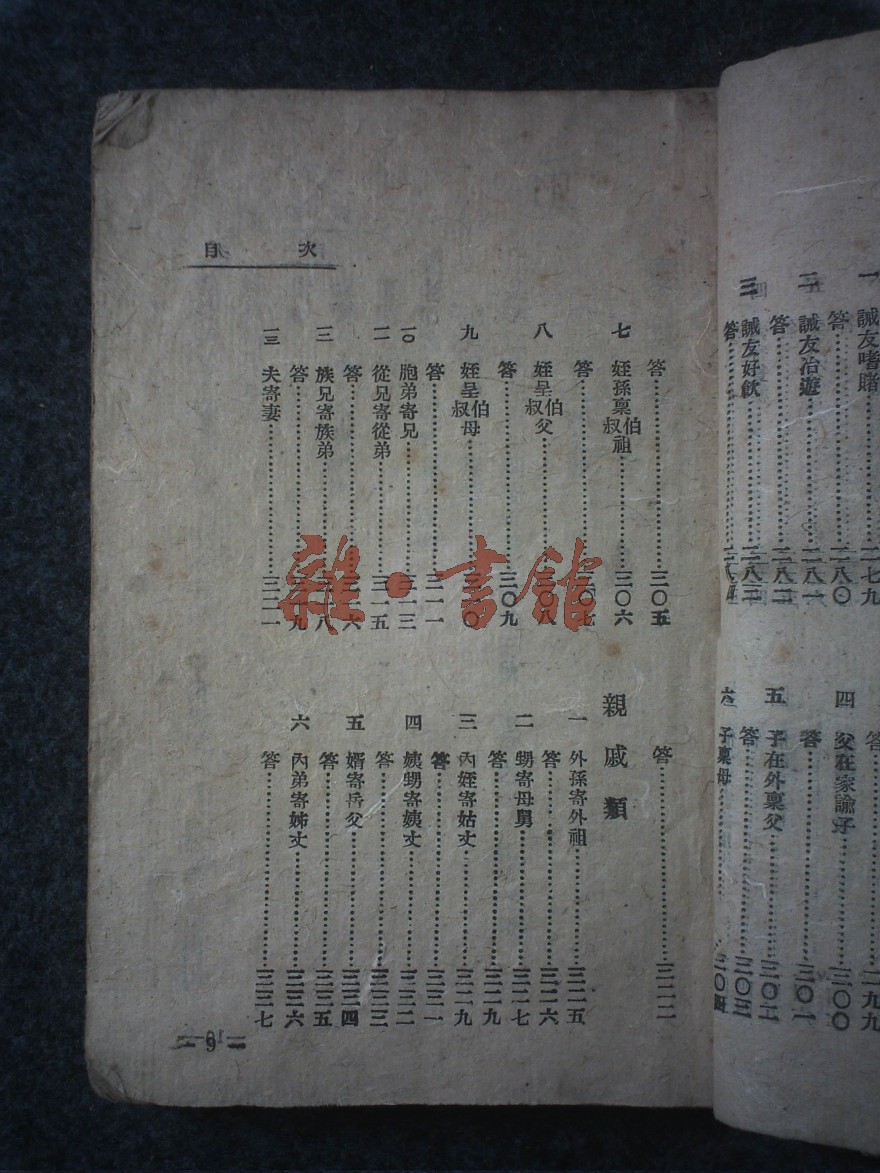 一 誡友嗜賭……二七九
答……二八〇
二 誡友冶遊……二八一
答……二八二
三 誡友好飲……二八三
答……二八四
答……二九九
四 父在家諭子……三〇〇
答……三〇一
五 子在外稟父……三〇二
答……三〇三
六 子稟母……三〇四
目次
答……三〇五
七 姪孫稟伯叔祖……三〇六
答……三〇七
八 姪呈伯叔父……三〇八
答……三〇九
九 姪呈伯叔母……三一〇
答……三一一
一〇 胞弟寄兄……三一三
一一 從兄寄從弟……三一五
答……三一六
一二 族兄寄族弟……三一八
答……三一九
一三 夫寄妻……三二一
答……三二二
親戚類
一 外孫寄外祖……三二五
答……三二六
二 甥寄母舅……三二七
答……三二九
三 內姪寄姑丈……三二九
答……三三一
四 姨甥寄姨丈……三三二
答……三三三
五 婿寄岳父……三三四
答……三三五
六 內弟寄姊丈……三三六
答……三三七
— 9 —
雜·書館